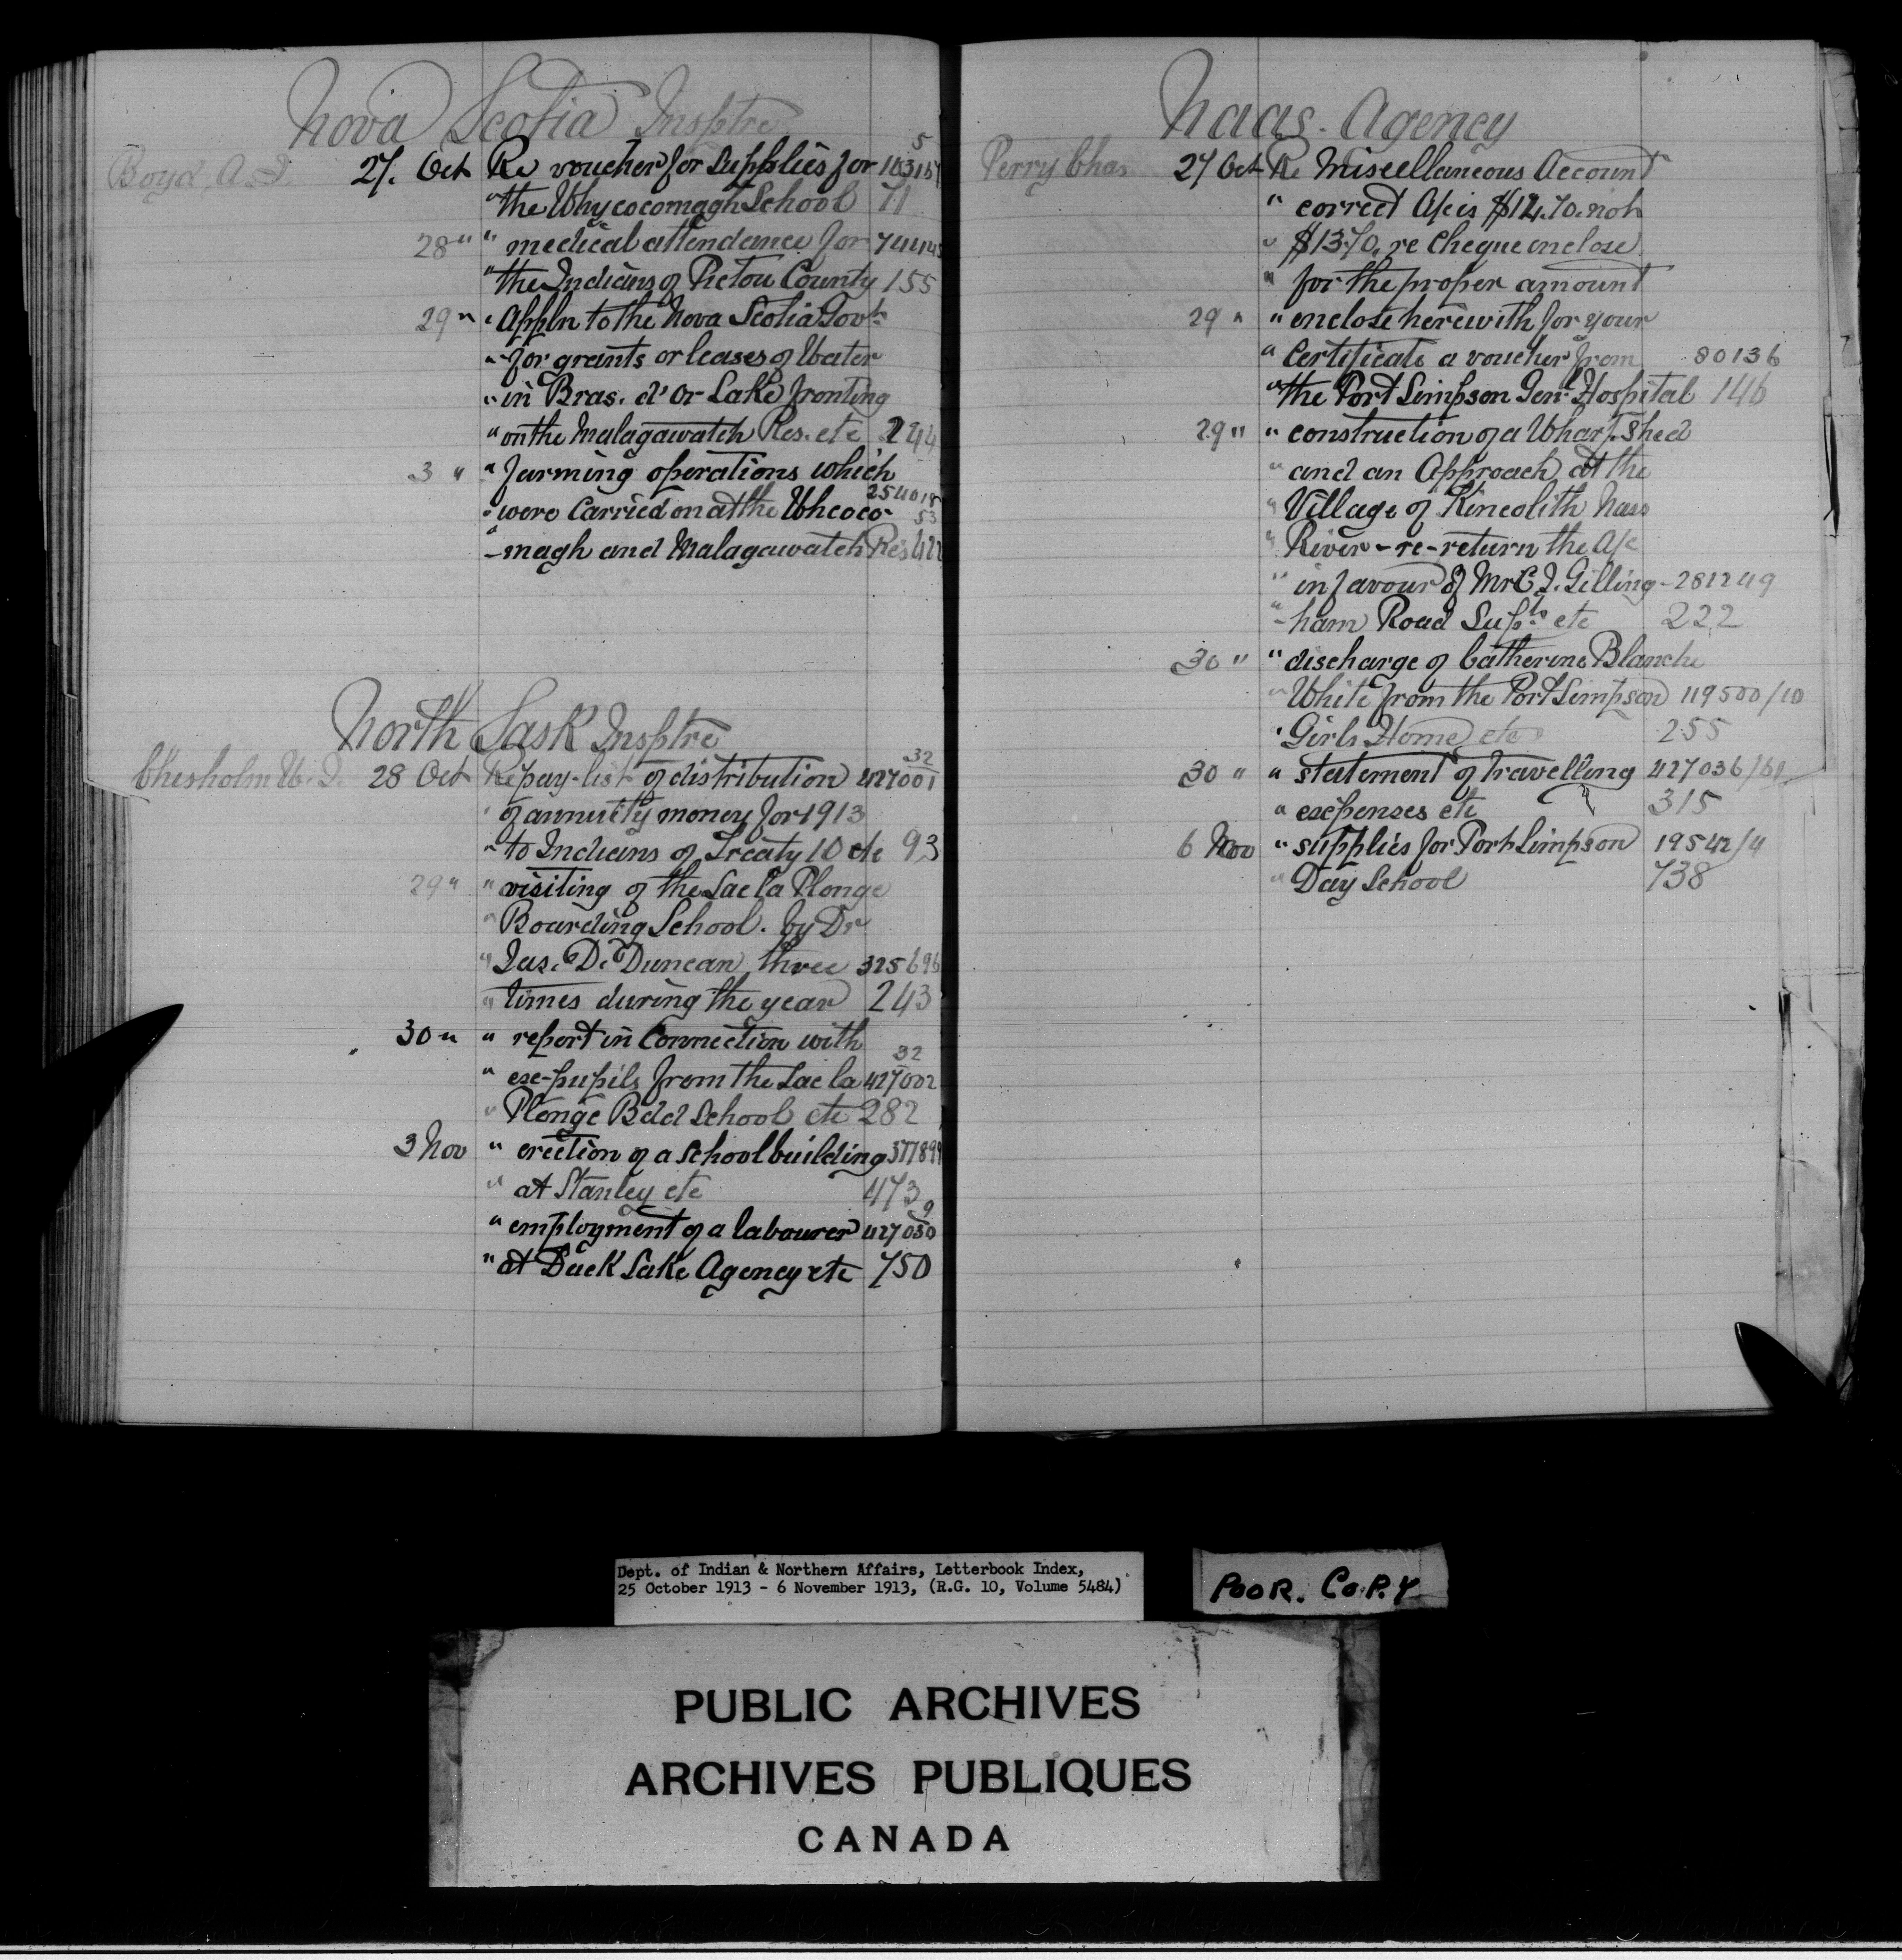 Nova Scotia Insptre
Boyd, A.J. 27. Oct Re voucher for supplies for 103157
5
" the Whycocomagh School 71
28 " " medical attendance for
" the Indians of Pictou County 155
29 " " Appln to the Nova Scotia Govt.
" for grants or leases of Water
" in Bras. d'or Lake fronting
" on the Malagawatch Res. etc 244
3 " " farming operations which
" were Carried on at the Whcoco-
" -magh and Malagawatch Res 422
North Sask Insptre
Chisholm W. J. 28 Oct Re pay-list of distribution 427001
32
" of annuity money for 1913
" to Indians of Treaty 10 etc 93
29 " " visiting of the Lac la Plonge
" Boarding School. by Dr
" Jas. D. Duncan three 325696
" times during the year 243
30 " " report in Connection with
32
" exe-pupils from the Lac la 427002
" Plonge Bdd School etc 282
3 Nov " erection of a school building 377899
" at Stanley etc 473
9
" employment of a labourer 427030
" at Duck Lake Agency etc 750
Naas. Agency
Perry Chas 27 Oct Re Miscellaneous Account
" correct A/c is $14.70. not
" $13.70, re Cheque enclose
" for the proper amount
29 " " enclose herewith for your
" Certificate a voucher from 80136
" the Port Simpson Genl. Hospital 146
29 " " construction of a Wharf. Shed
" and an Approach at the
" Village of Kincolith Nass
" River - re - return the A/c
" in favour of Mr C. J. Gilling- 281249
" -ham Road Supt. etc 222
30 " " discharge of Catherine Blanche
" White from the Port Simpson 119500/10
" Girls Home etc 255
30 " " statement of travelling 427036/61
" exepenses etc 315
6 Nov " supplies for Port Simpson 19542/4
" Day School 738
Dept. of Indian & Northern Affairs, Letterbook Index,
25 October 1913 - 6 November 1913, (R.G. 10, Volume 5484)
POOR. COPY
PUBLIC ARCHIVES
ARCHIVES PUBLIQUES
CANADA